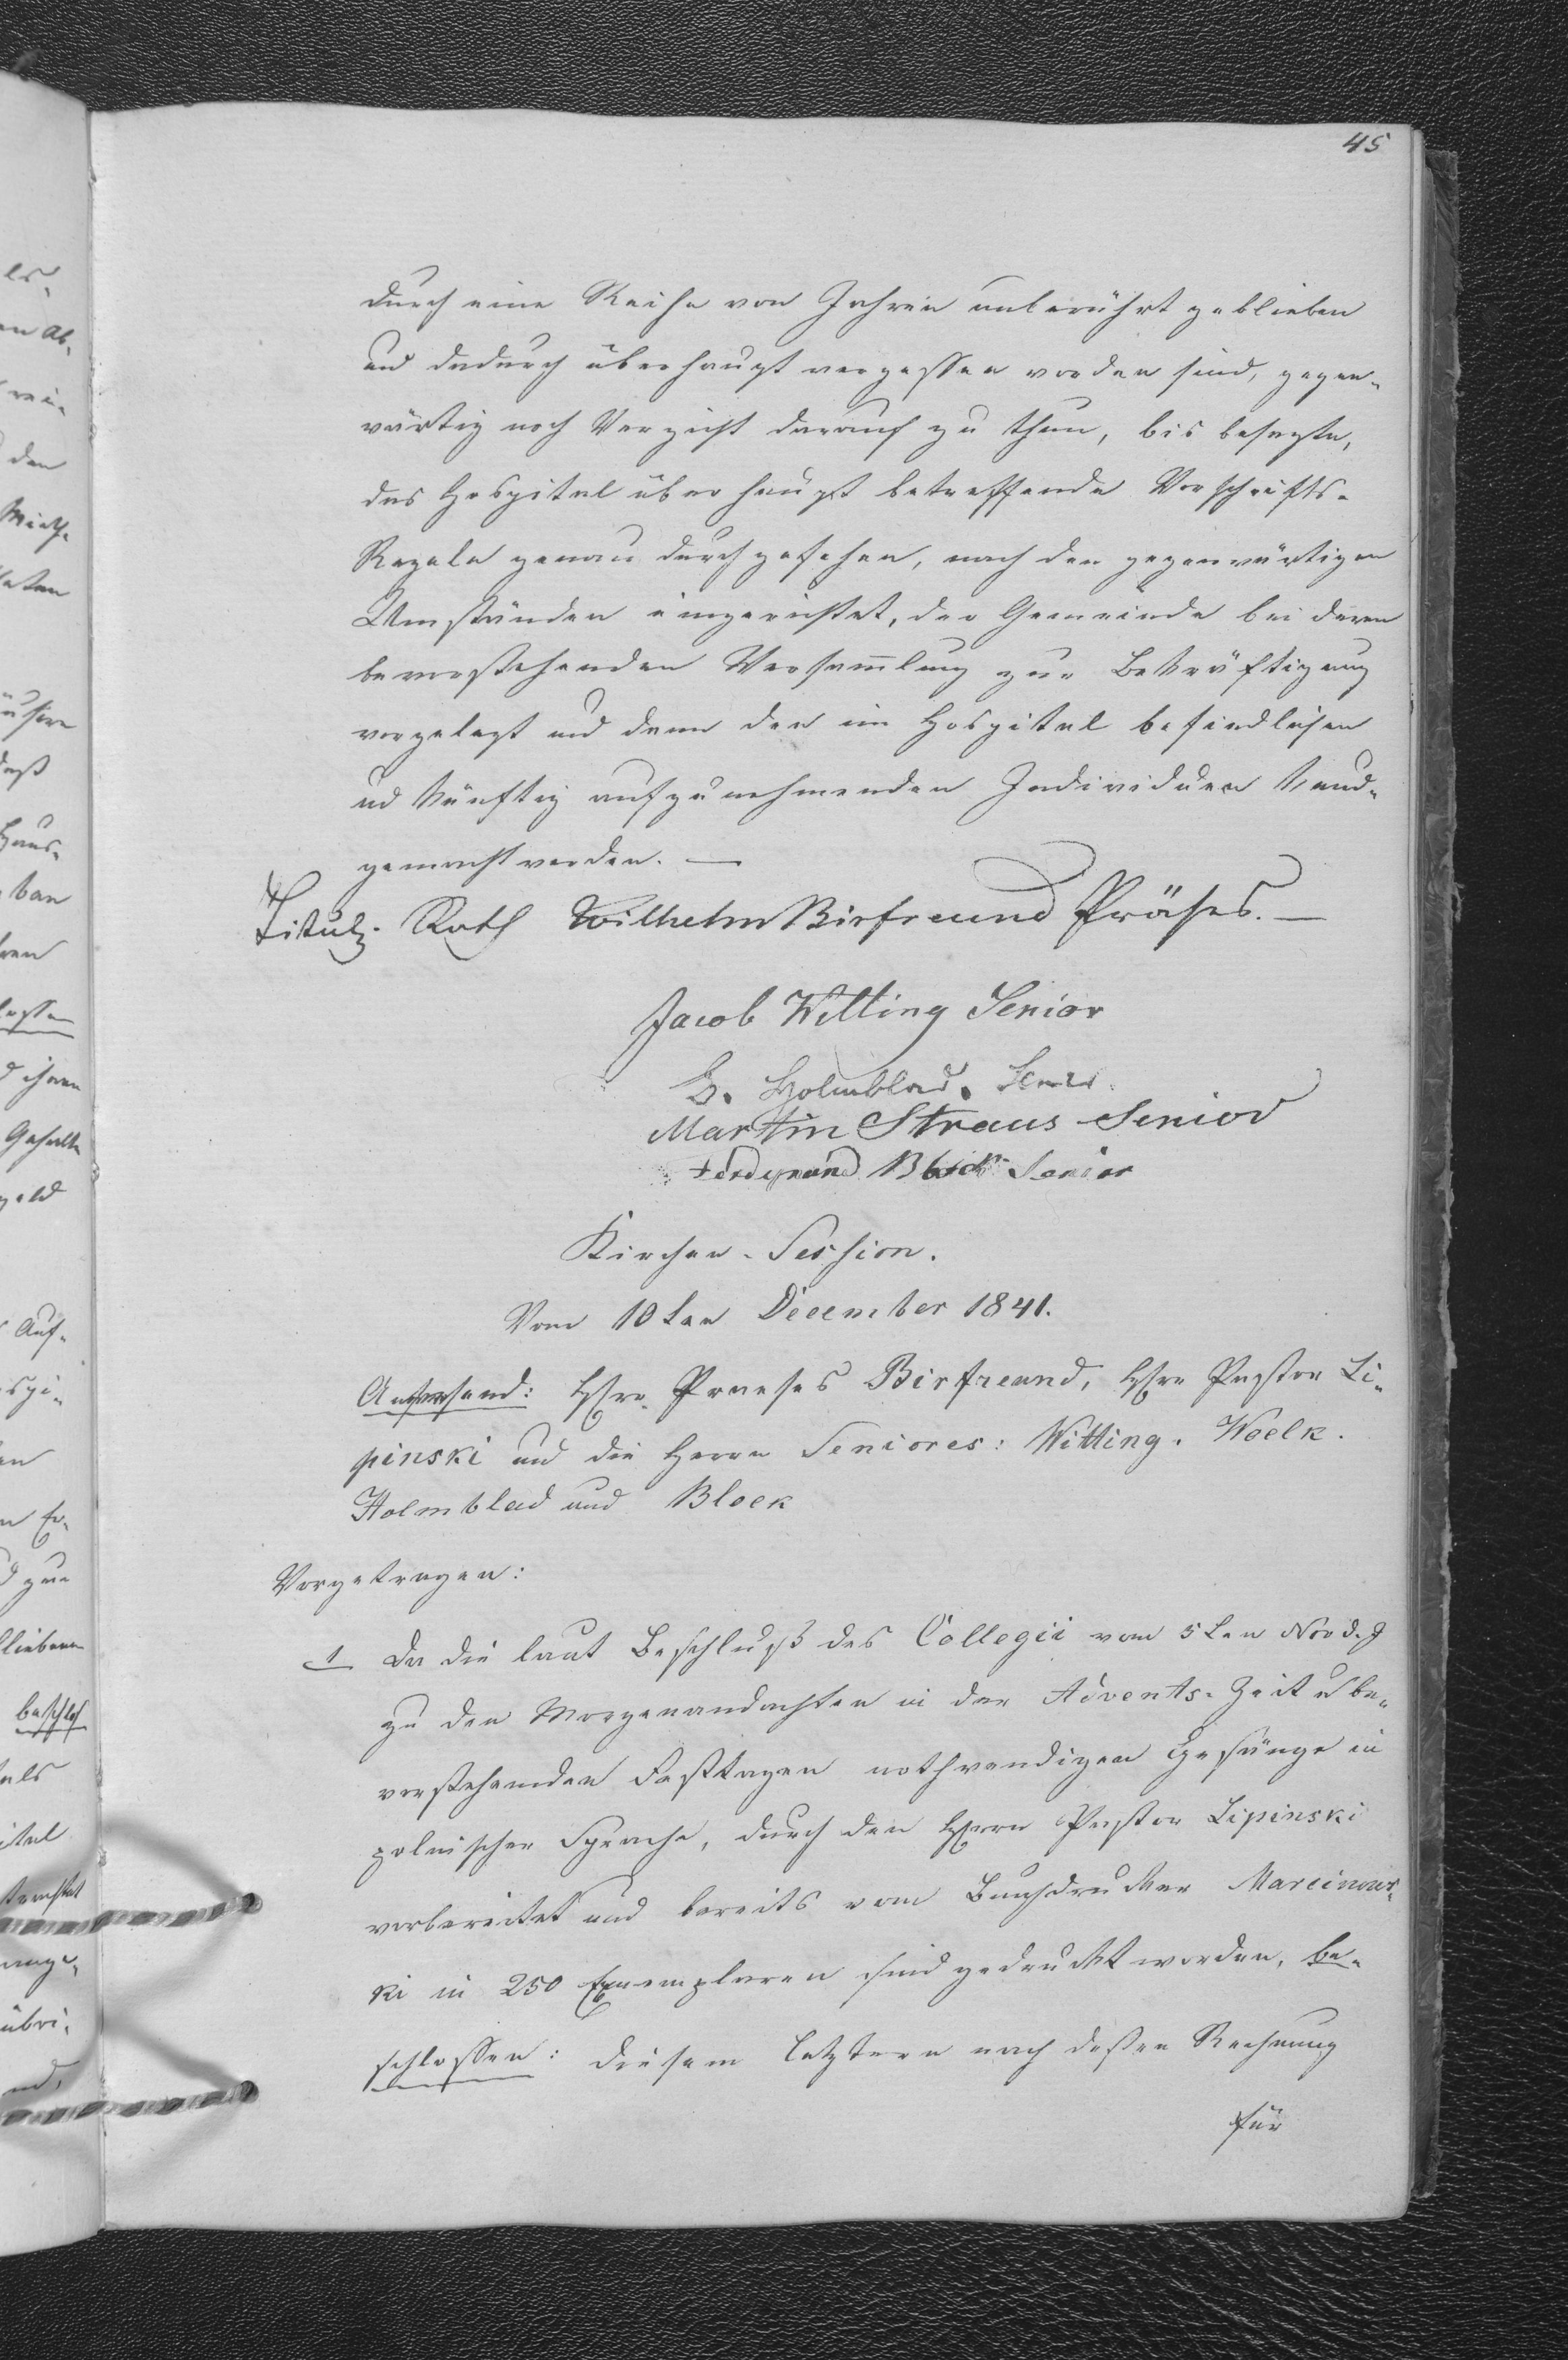 45
durch eine Reihe von Jahren unberührt geblieben
und dadurch überhaupt vergessen worden sind, gegen-
wärtig noch Verzicht darauf zu thun, bis besagte,
das Hospital überhaupt betreffende Vorschrifts-
Regeln genau durchgesehen, nach den gegenwärtigen
Umständen eingerichtet, der Gemeinde bei deren
bevorstehenden Versam̅lung zur Bekräftigung
vorgelegt und dann den im Hospital befindlichen
und künftig aufzunehmenden Individuen kund-
gemacht werden. —
Titulr. Rath Wilhelm Birfreund Präses. —
Jacob Witting Senior
Holmblad. Senior
Martin Straus Senior
Ferdynand Block Senior
Kirchen-Session.
Vom 10ten December 1841.
Anwesend: Herr Praeses Birfreund, Herr Pastor Li-
pinski und die Herrn Seniores: Witting. Woelk.
Holmblad und Block
Vorgetragen:
1 Da die laut Beschluß des Collegii vom 5ten Nov d. J
zu den Morgenandachten in der Advents-Zeit u be-
vorstehenden Festtagen nothwendigen Gesänge in
polnischer Sprache, durch den Herrn Pastor Lipinski
vorbereitet und bereits vom Buchdrucker Marcinows-
ki in 250 Exemplaren sind gedruckt worden, be-
schlossen: diesem letztern nach dessen Rechnung
für